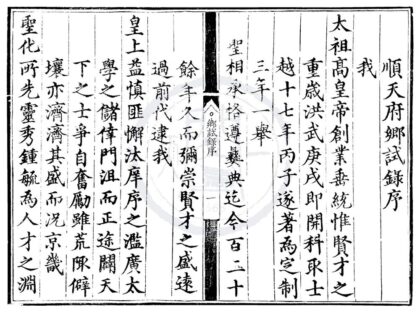 順天府鄉試錄序
我
太祖高皇帝創業垂統惟賢才之
重歲洪武庚戌即開科取士
越十七年丙子遂著為定制
三年一舉
聖相承恪遵彝典迄今百二十
鄉試錄序
餘年久而彌崇賢才之盛遠
過前代逮我
皇上益慎匪懈汰庠序之濫廣太
學之儲倖門沮而正途闢天
下之士爭自奮勵雖荒陬僻
壤亦濟濟其盛而況京畿
聖化所先靈秀鍾毓為人才之淵